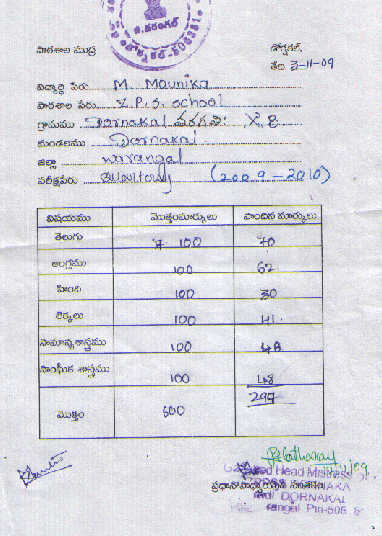 పాఠశాల ముద్ర
డోర్నకల్.
తేది 3-11-09
విద్యార్థి పేరు M. Mounika
పాఠశాల పేరు Z.P.S. school
గ్రామము Dornakal తరగతి: X B
మండలము Dornakal
జిల్లా warangal
పరీక్షపేరు Quaterly (2009-2010)
విషయము మొత్తంమార్కులు పొందిన మార్కులు
తెలుగు 100 70
ఆంగ్లము 100 62
హింది 100 30
లెక్కలు 100 41
సామాన్యశాస్త్రము 100 48
సాంఘీక శాస్త్రము 100 48
మొత్తం 600 299
Head Mistress
DORNAKAL